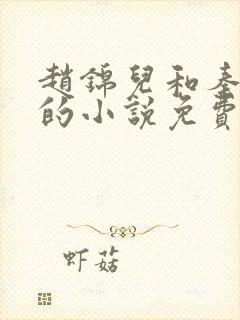 趙錦兒和秦
的小說免費
虾菇